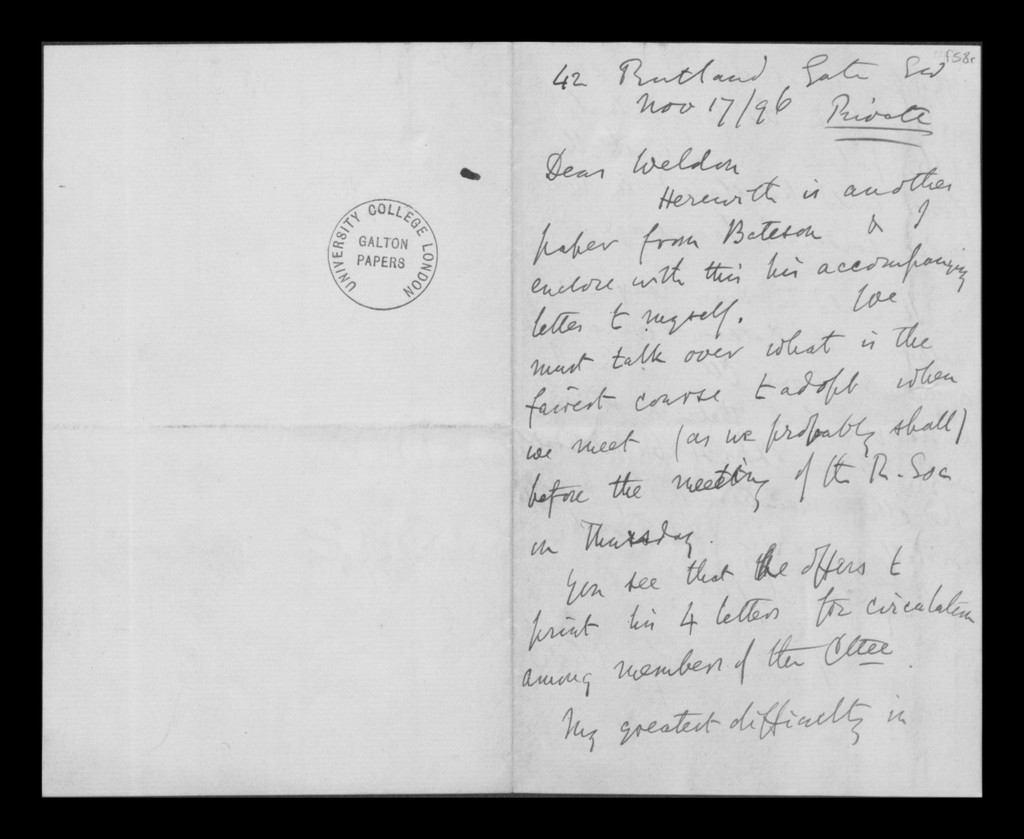 UNIVERSITY COLLEGE LONDON
GALTON
PAPERS
f58r
42 Rutland Gate SW
Nov 17/96 Private
Dear Weldon
Herewith is another
paper from Bateson & I
enclose with this his accompanying
letter to myself. We
must talk over what is the
fairest course to adopt when
we meet (as we probably shall)
before the meeting of the R. Soc
on Thursday.
You see that he offers to
print his 4 letters for circulation
among members of the Cttee.
My greatest difficulty in